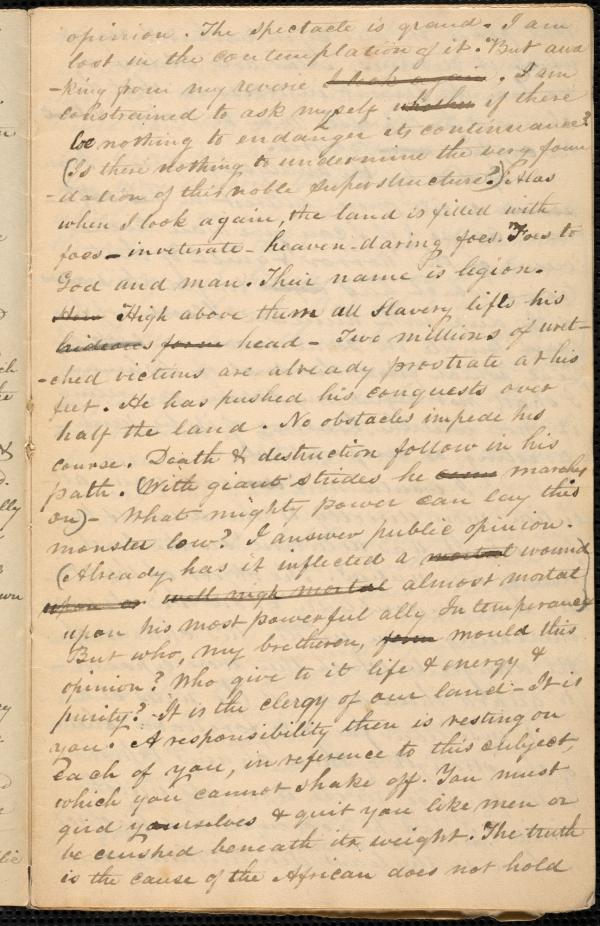 opinion. The spectacle is grand. I am
lost in the contemplation of it. But awa
-king from my reverie I look again. I am
constrained to ask myself whether if there
be nothing to endanger its continuance?
(Is there nothing to undermine the very foun
-dation of this noble superstructure?) Alas
when I look again, the land is filled with
foes - inveterate - heaven-daring foes. Foes to
God and man. Their name is legion.
How High above them all Slavery lifts his
hideous form head - Two millions of wret-
-ched victims are already prostrate at his
feet. He has pushed his conquests over
half the land. No obstacles impede his
course. Death & destruction follow in his
path. (With giant strides he came marches
on) - What mighty power can lay this
monster low? I answer public opinion.
(Already has it inflected a mortal wound
upon or well nigh mortal almost mortal
upon his most powerful ally Intemperance)
But who, my bretheren, form mould this
opinion? Who give to it life & energy &
purity? - It is the clergy of our land - It is
you. A responsibility then is resting on
each of you, in reference to this subject,
which you cannot shake off. You must
gird yourselves & quit you like men or
be crushed beneath its weight. The truth
is the cause of the African does not hold